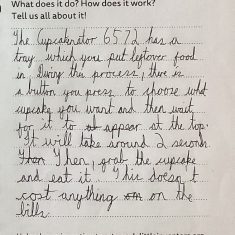 What does it do? How does it work?
Tell us all about it!
The Cupcakenator 6572 has a
tray which you put leftover food
in. During this process, there is
a button you press to choose what
cupcake you want and then wait
for it to at appear at the top.
It will take around 2 seconds.
Then Then, grab the cupcake
and eat it. This doesn't
cost anything on on the
bills.